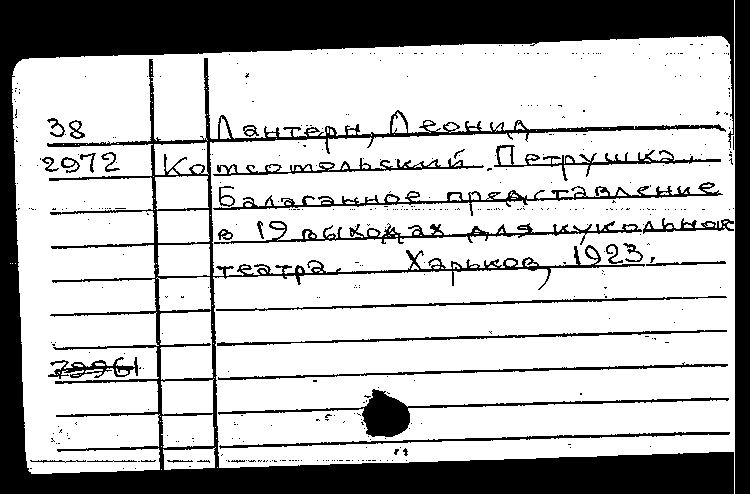 38 Лантерн, Леонид
2972 Комсомольский Петрушка.
Балаганное представление
в 19 выходах для кукольного
театра. Харьков, 1923.
79961